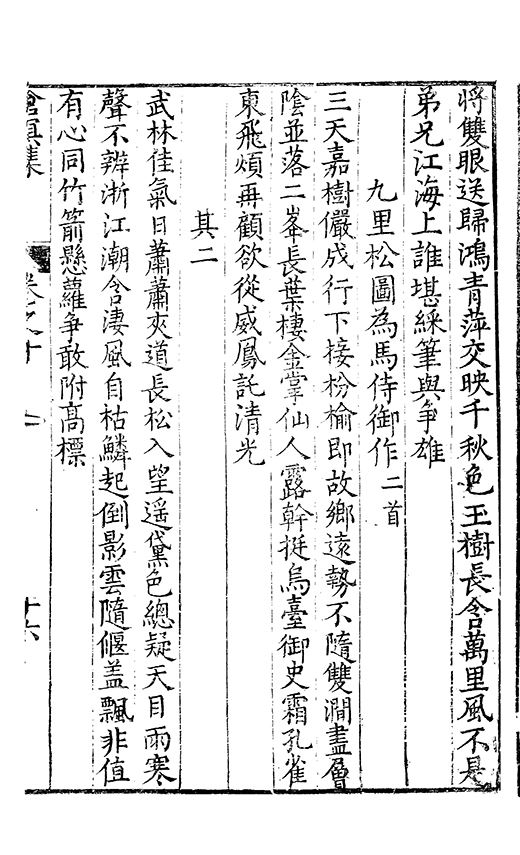 將雙眼送歸鴻青萍交映千秋色玉樹長含萬里風不是
弟兄江海上誰堪綵筆與爭雄
九里松圖為馬侍御作二首
三天嘉樹儼成行下接枌榆即故鄉遠勢不隨雙澗盡層
陰並落二峯長葉棲金掌仙人露幹挺烏臺御史霜孔雀
東飛煩再顧欲從威鳳託清光
其二
武林佳氣日蕭蕭夾道長松入望遥黛色總疑天目雨寒
聲不辨浙江潮含淒風自枯鱗起倒影雲隨偃盖飄非值
有心同竹箭懸蘿争敢附高標
滄溟集
卷之十
十六